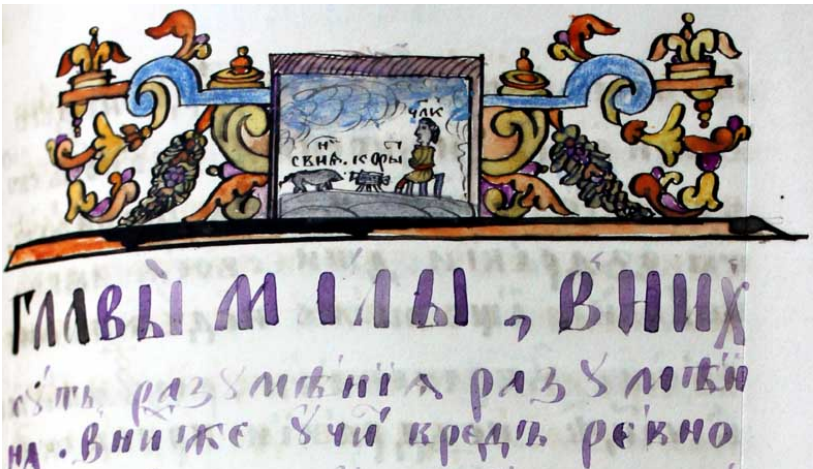 члк
свиня. коры
главы милы, в них
суть разумѣнїа разумѣнї
на. вни́же учи кредъ ре́вно